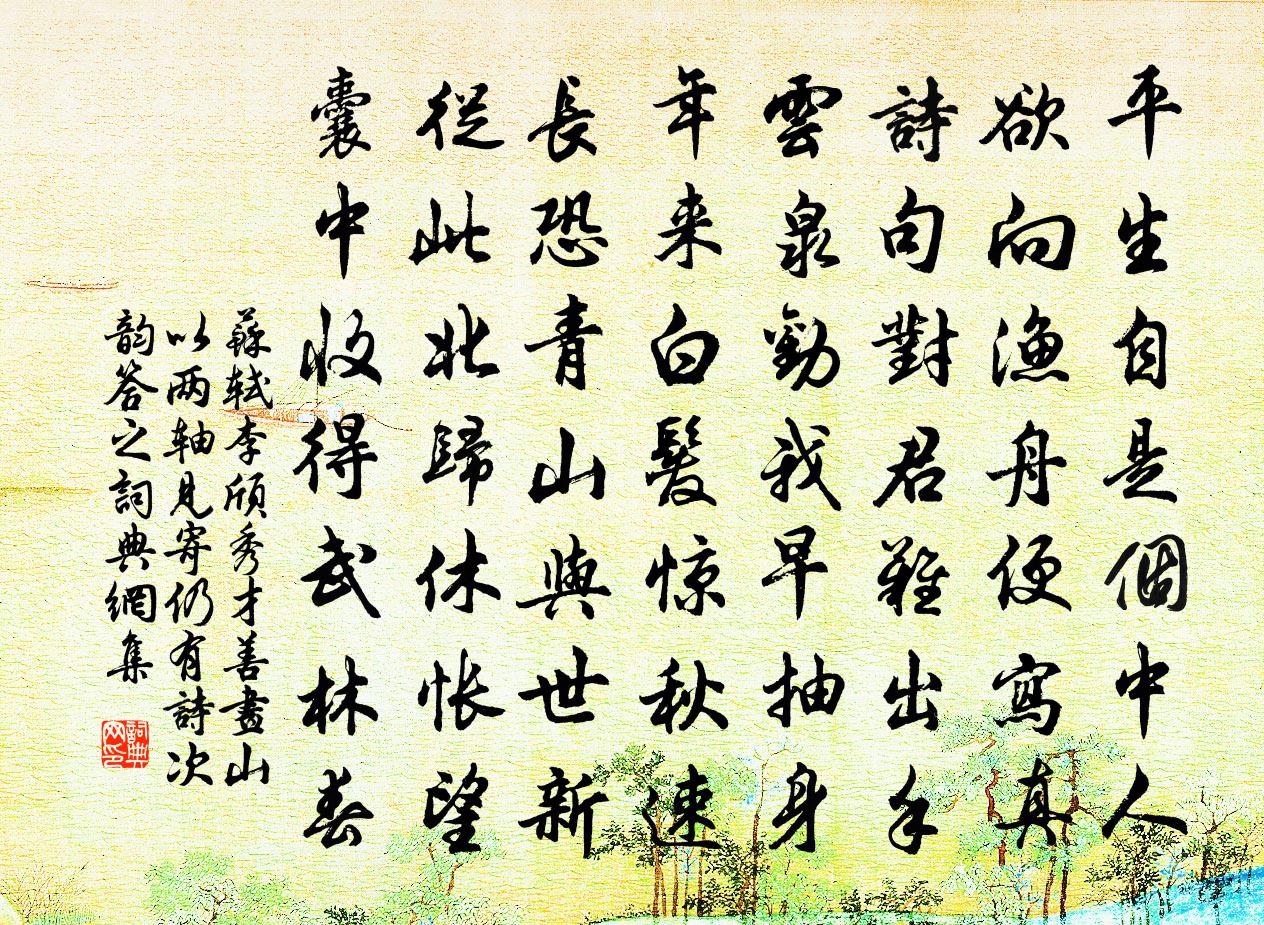 平生自是個中人
欲向漁舟便寫真
詩句對君難出手
雲泉勸我早抽身
年来白髮惊秋速
長恐青山與世新
從此北歸休悵望
囊中收得武林春
蘇軾李頎秀才善畫山
以兩軸見寄仍有詩次
韵答之詞典網集
詞典
网印